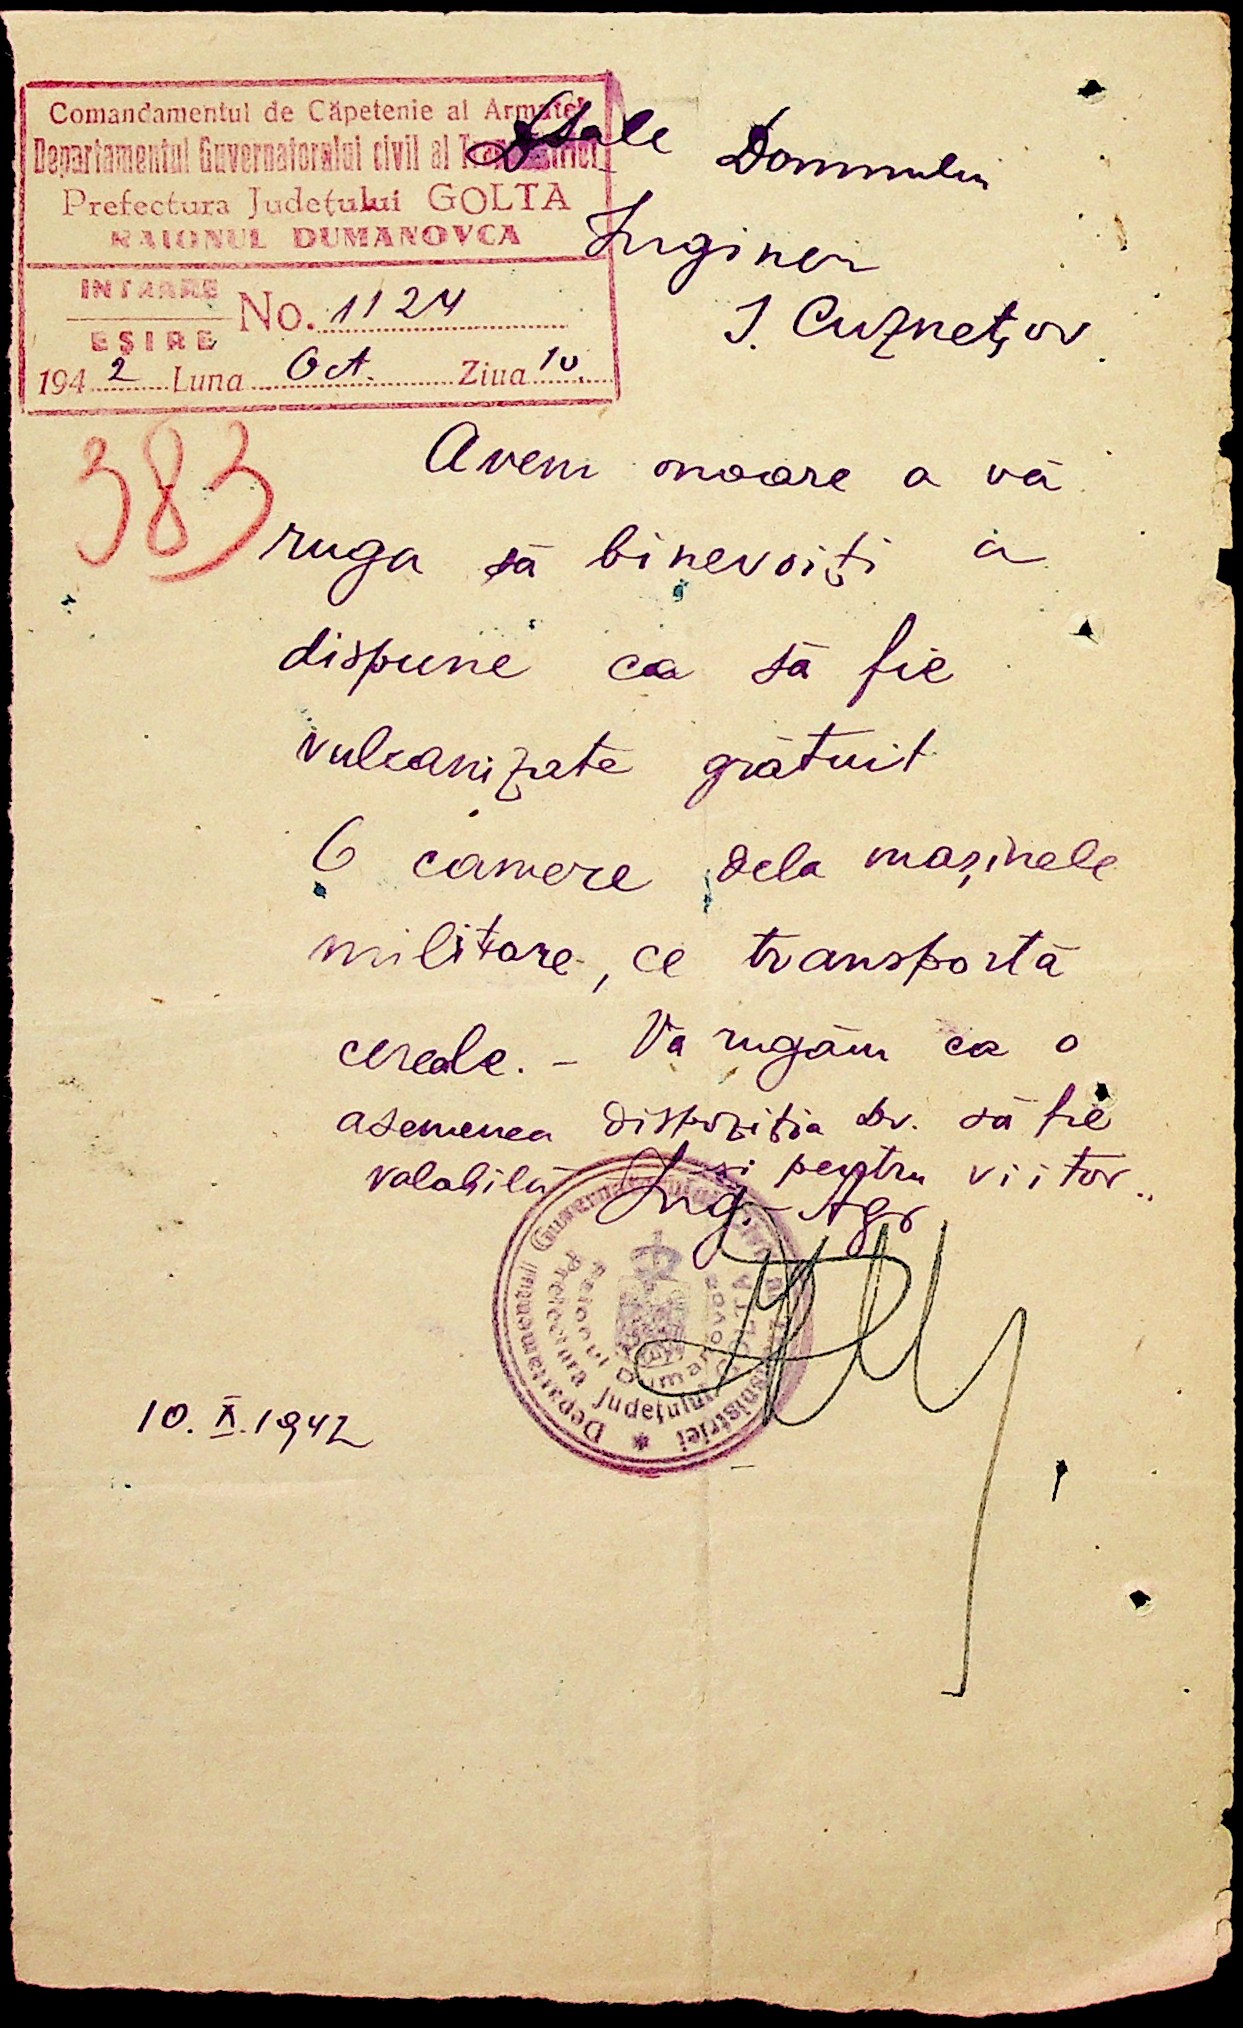 Comandamentul de Căpetenie al Armatei
Departamentul Guvernatorului civil al Transnistriei
Prefectura Județului GOLTA
RAIONUL DUMANOVCA
INTRARE
EȘIRE
No. 1124
1942 Luna Oct. Ziua 10.
383
Sale Domnului
Inginer
I. Cuznețov
Avem onoare a vă
ruga să binevoiți a
dispune ca să fie
vulcanizate gratuit
6 camere dela mașinele
militare, ce transportă
cereale. – Vă rugăm ca o
asemenea dispoziția Dv. să fie
valabilă și pentru viitor.
Ing. Agr
Departamentul Guvernatorului civil al Transnistriei
Prefectura Județului GOLTA
Raionul Dumanovca
10.X.1942